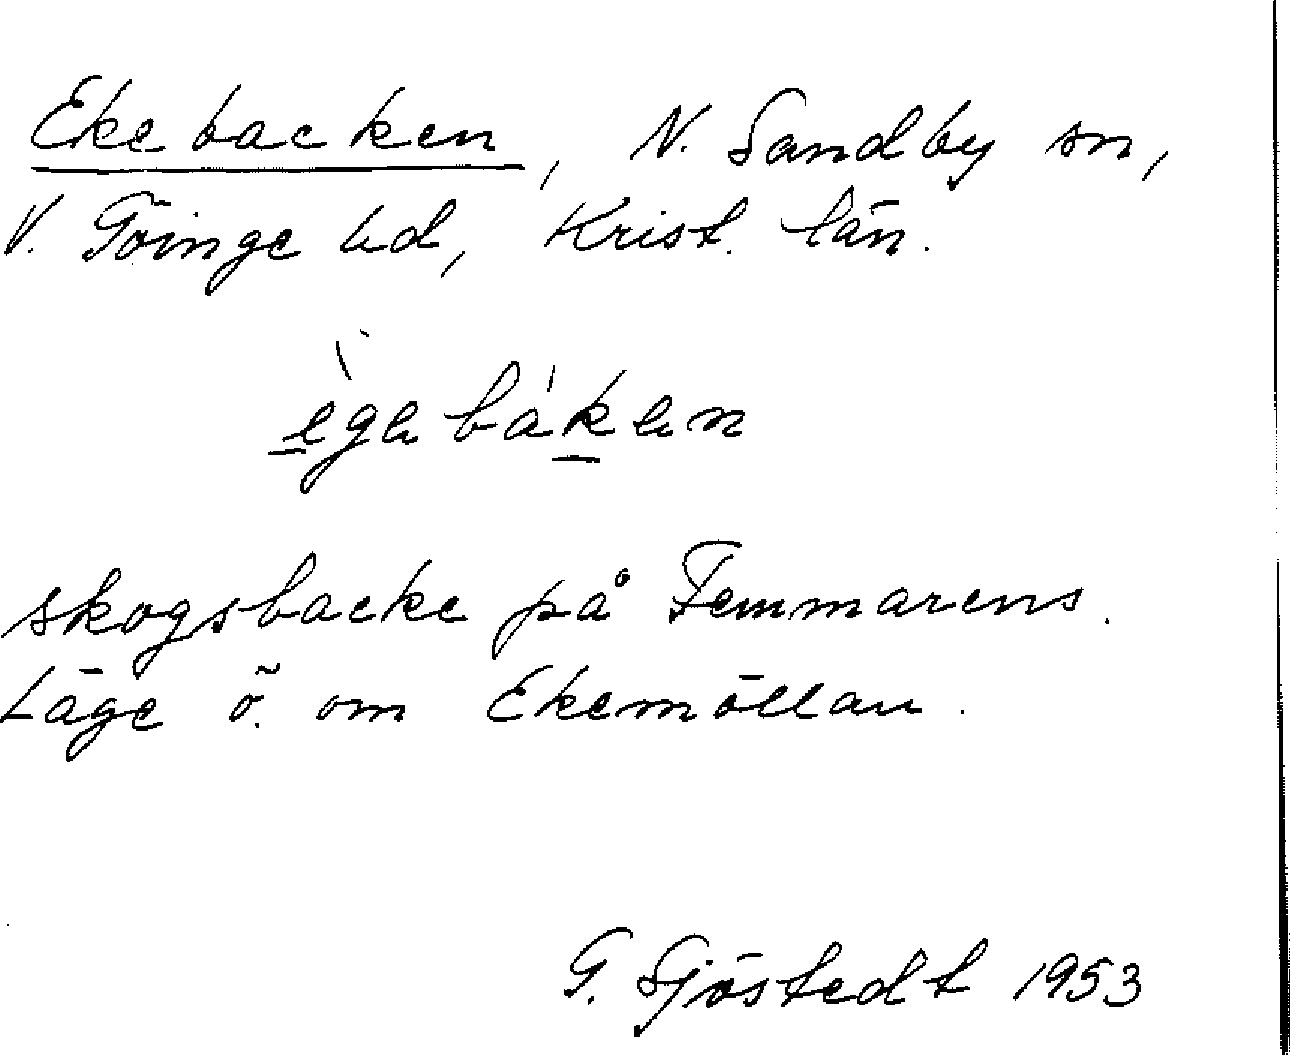 Ekebacken, N. Sandby sn,
V. Göinge hd, Krist. län.
skogsbacke på Femmarens.
Läge ö. om Ekemöllan.
G. Sjöstedt 1953